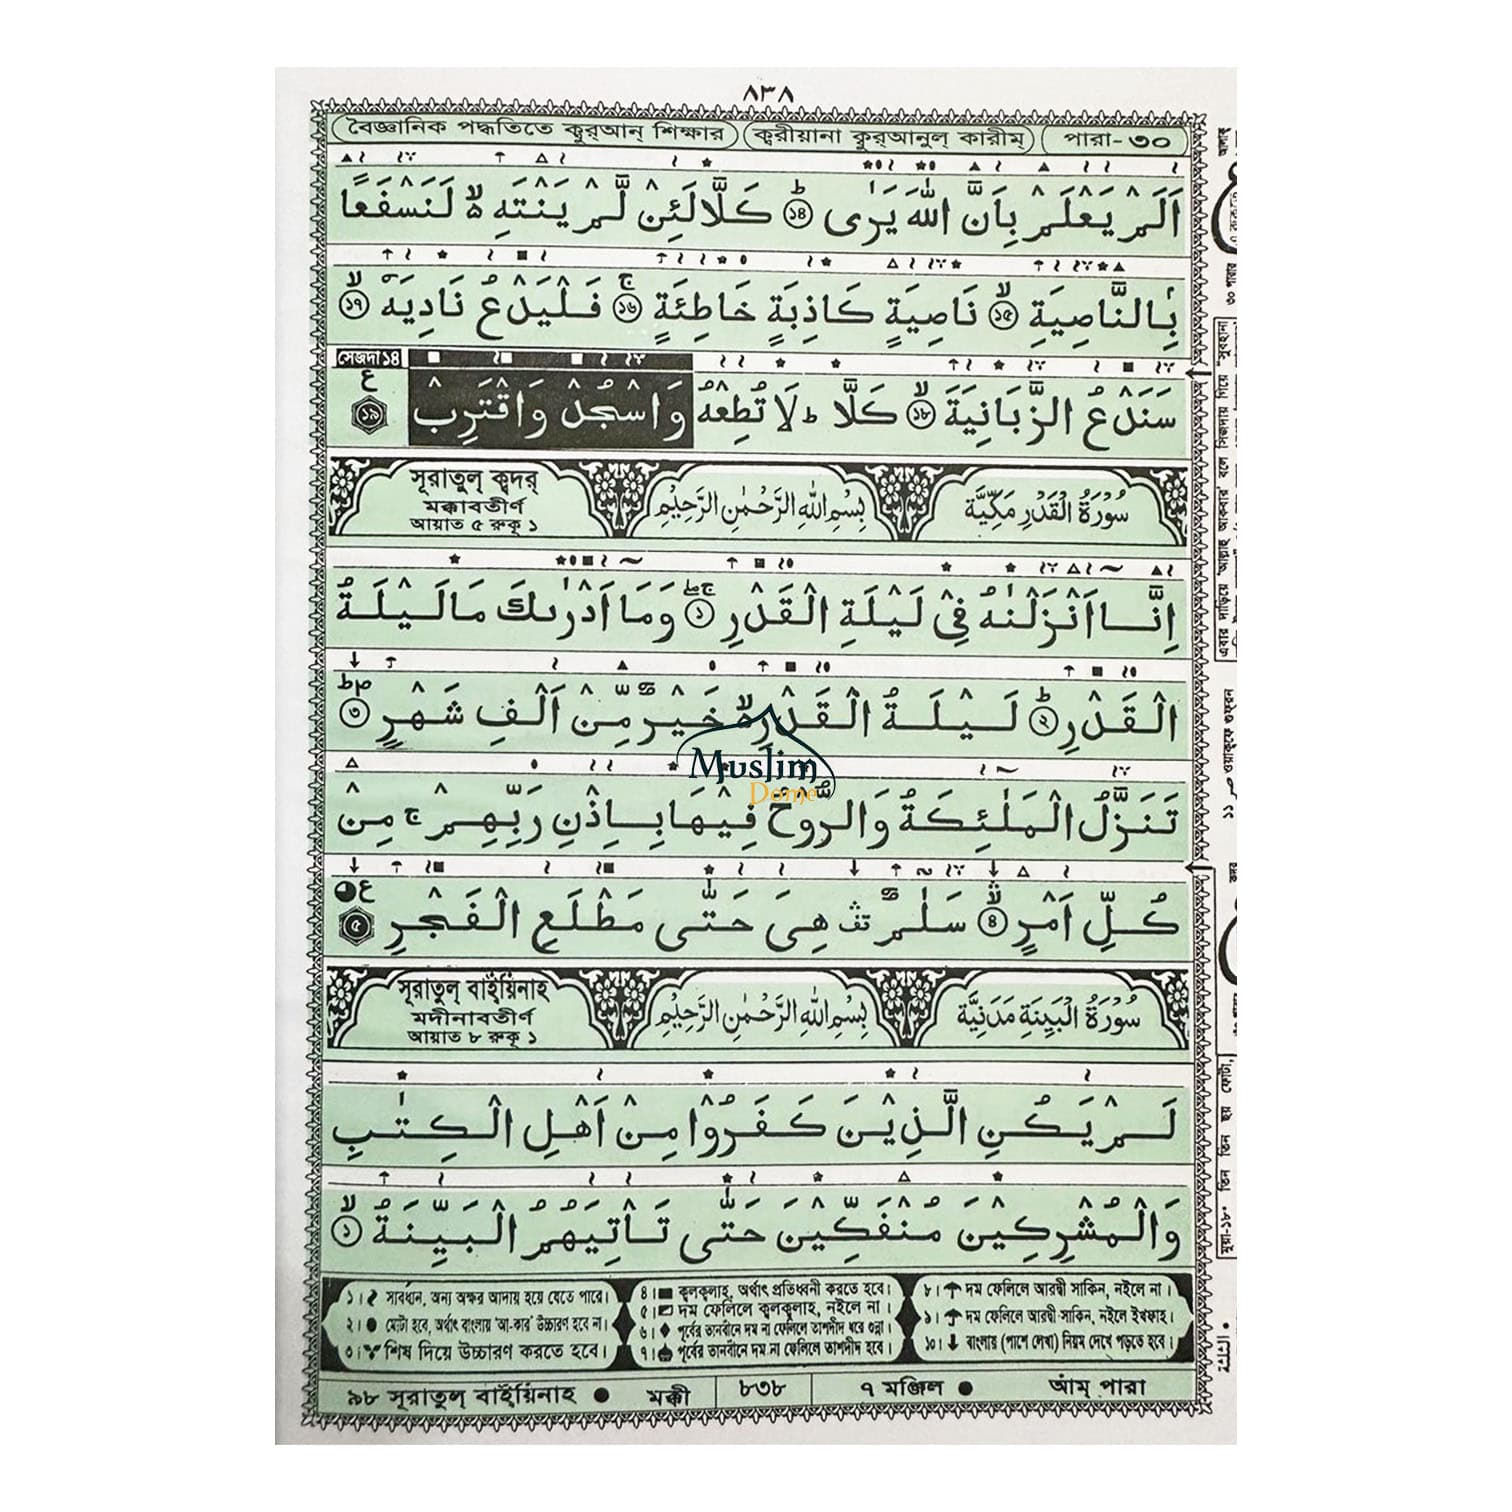 ٨٣٨
বৈজ্ঞানিক পদ্ধতিতে ক্বুর্আন্ শিক্ষার
ক্বারীয়ানা ক্বুর্আনুল্ কারীম্
পারা- ৩০
اَلَمْ يَعْلَمْ بِاَنَّ اللّٰهَ يَرٰى ؕ ১৪ كَلَّا لَئِنْ لَّمْ يَنْتَهِ ۙ۬ لَنَسْفَعًا
بِالنَّاصِيَةِ ۙ ১৫ نَاصِيَةٍ كَاذِبَةٍ خَاطِئَةٍ ۚ ১৬ فَلْيَدْعُ نَادِيَهٗ ۙ ১৭
সেজদা ১৪
سَنَدْعُ الزَّبَانِيَةَ ۙ ১৮ كَلَّا ؕ لَا تُطِعْهُ وَاسْجُدْ وَاقْتَرِبْ ১৯ ع
সূরাতুল্ ক্বদর্
মক্কাবতীর্ণ
আয়াত ৫ রুকূ ১
بِسْمِ اللّٰهِ الرَّحْمٰنِ الرَّحِيْمِ
سُوْرَةُ الْقَدْرِ مَكِّيَّةٌ
اِنَّاۤ اَنْزَلْنٰهُ فِيْ لَيْلَةِ الْقَدْرِ ১ وَمَاۤ اَدْرٰىكَ مَا لَيْلَةُ
الْقَدْرِ ؕ ২ لَيْلَةُ الْقَدْرِ ۙ۬ خَيْرٌ مِّنْ اَلْفِ شَهْرٍ ৩
تَنَزَّلُ الْمَلٰٓئِكَةُ وَالرُّوْحُ فِيْهَا بِاِذْنِ رَبِّهِمْ ۚ مِنْ
كُلِّ اَمْرٍ ۙ ৪ سَلٰمٌ هِيَ حَتّٰى مَطْلَعِ الْفَجْرِ ৫ ع
সূরাতুল্ বাইয়িনাহ
মদীনাবতীর্ণ
আয়াত ৮ রুকূ ১
بِسْمِ اللّٰهِ الرَّحْمٰنِ الرَّحِيْمِ
سُوْرَةُ الْبَيِّنَةِ مَدَنِيَّةٌ
لَمْ يَكُنِ الَّذِيْنَ كَفَرُوْا مِنْ اَهْلِ الْكِتٰبِ
وَالْمُشْرِكِيْنَ مُنْفَكِّيْنَ حَتّٰى تَاْتِيَهُمُ الْبَيِّنَةُ ۙ ১
১। সাবধান, অন্য অক্ষর আদায় হয়ে যেতে পারে।
২। মোটা হবে, অর্থাৎ বাংলায় 'আ-কার' উচ্চারণ হবে না।
৩। শিষ দিয়ে উচ্চারণ করতে হবে।
৪। ক্বলক্বলাহ, অর্থাৎ প্রতিধ্বনী করতে হবে।
৫। দম ফেলিলে ক্বলক্বলাহ, নইলে না।
৬। পূর্বের তানবীনে দম না ফেলিলে তাশদীদ ধরে গুন্না।
৭। পূর্বের তানবীনে দম না ফেলিলে তাশদীদ হবে।
৮। দম ফেলিলে আরদ্বী সাকিন, নইলে না।
৯। দম ফেলিলে আরদ্বী সাকিন, নইলে ইখফাহ।
১০। বাংলায় (পাশে লেখা) নিয়ম দেখে পড়তে হবে।
৯৮ সূরাতুল্ বাইয়িনাহ ● মক্কী
৮৩৮
৭ মঞ্জিল ● আম্ পারা
Muslim
Dome